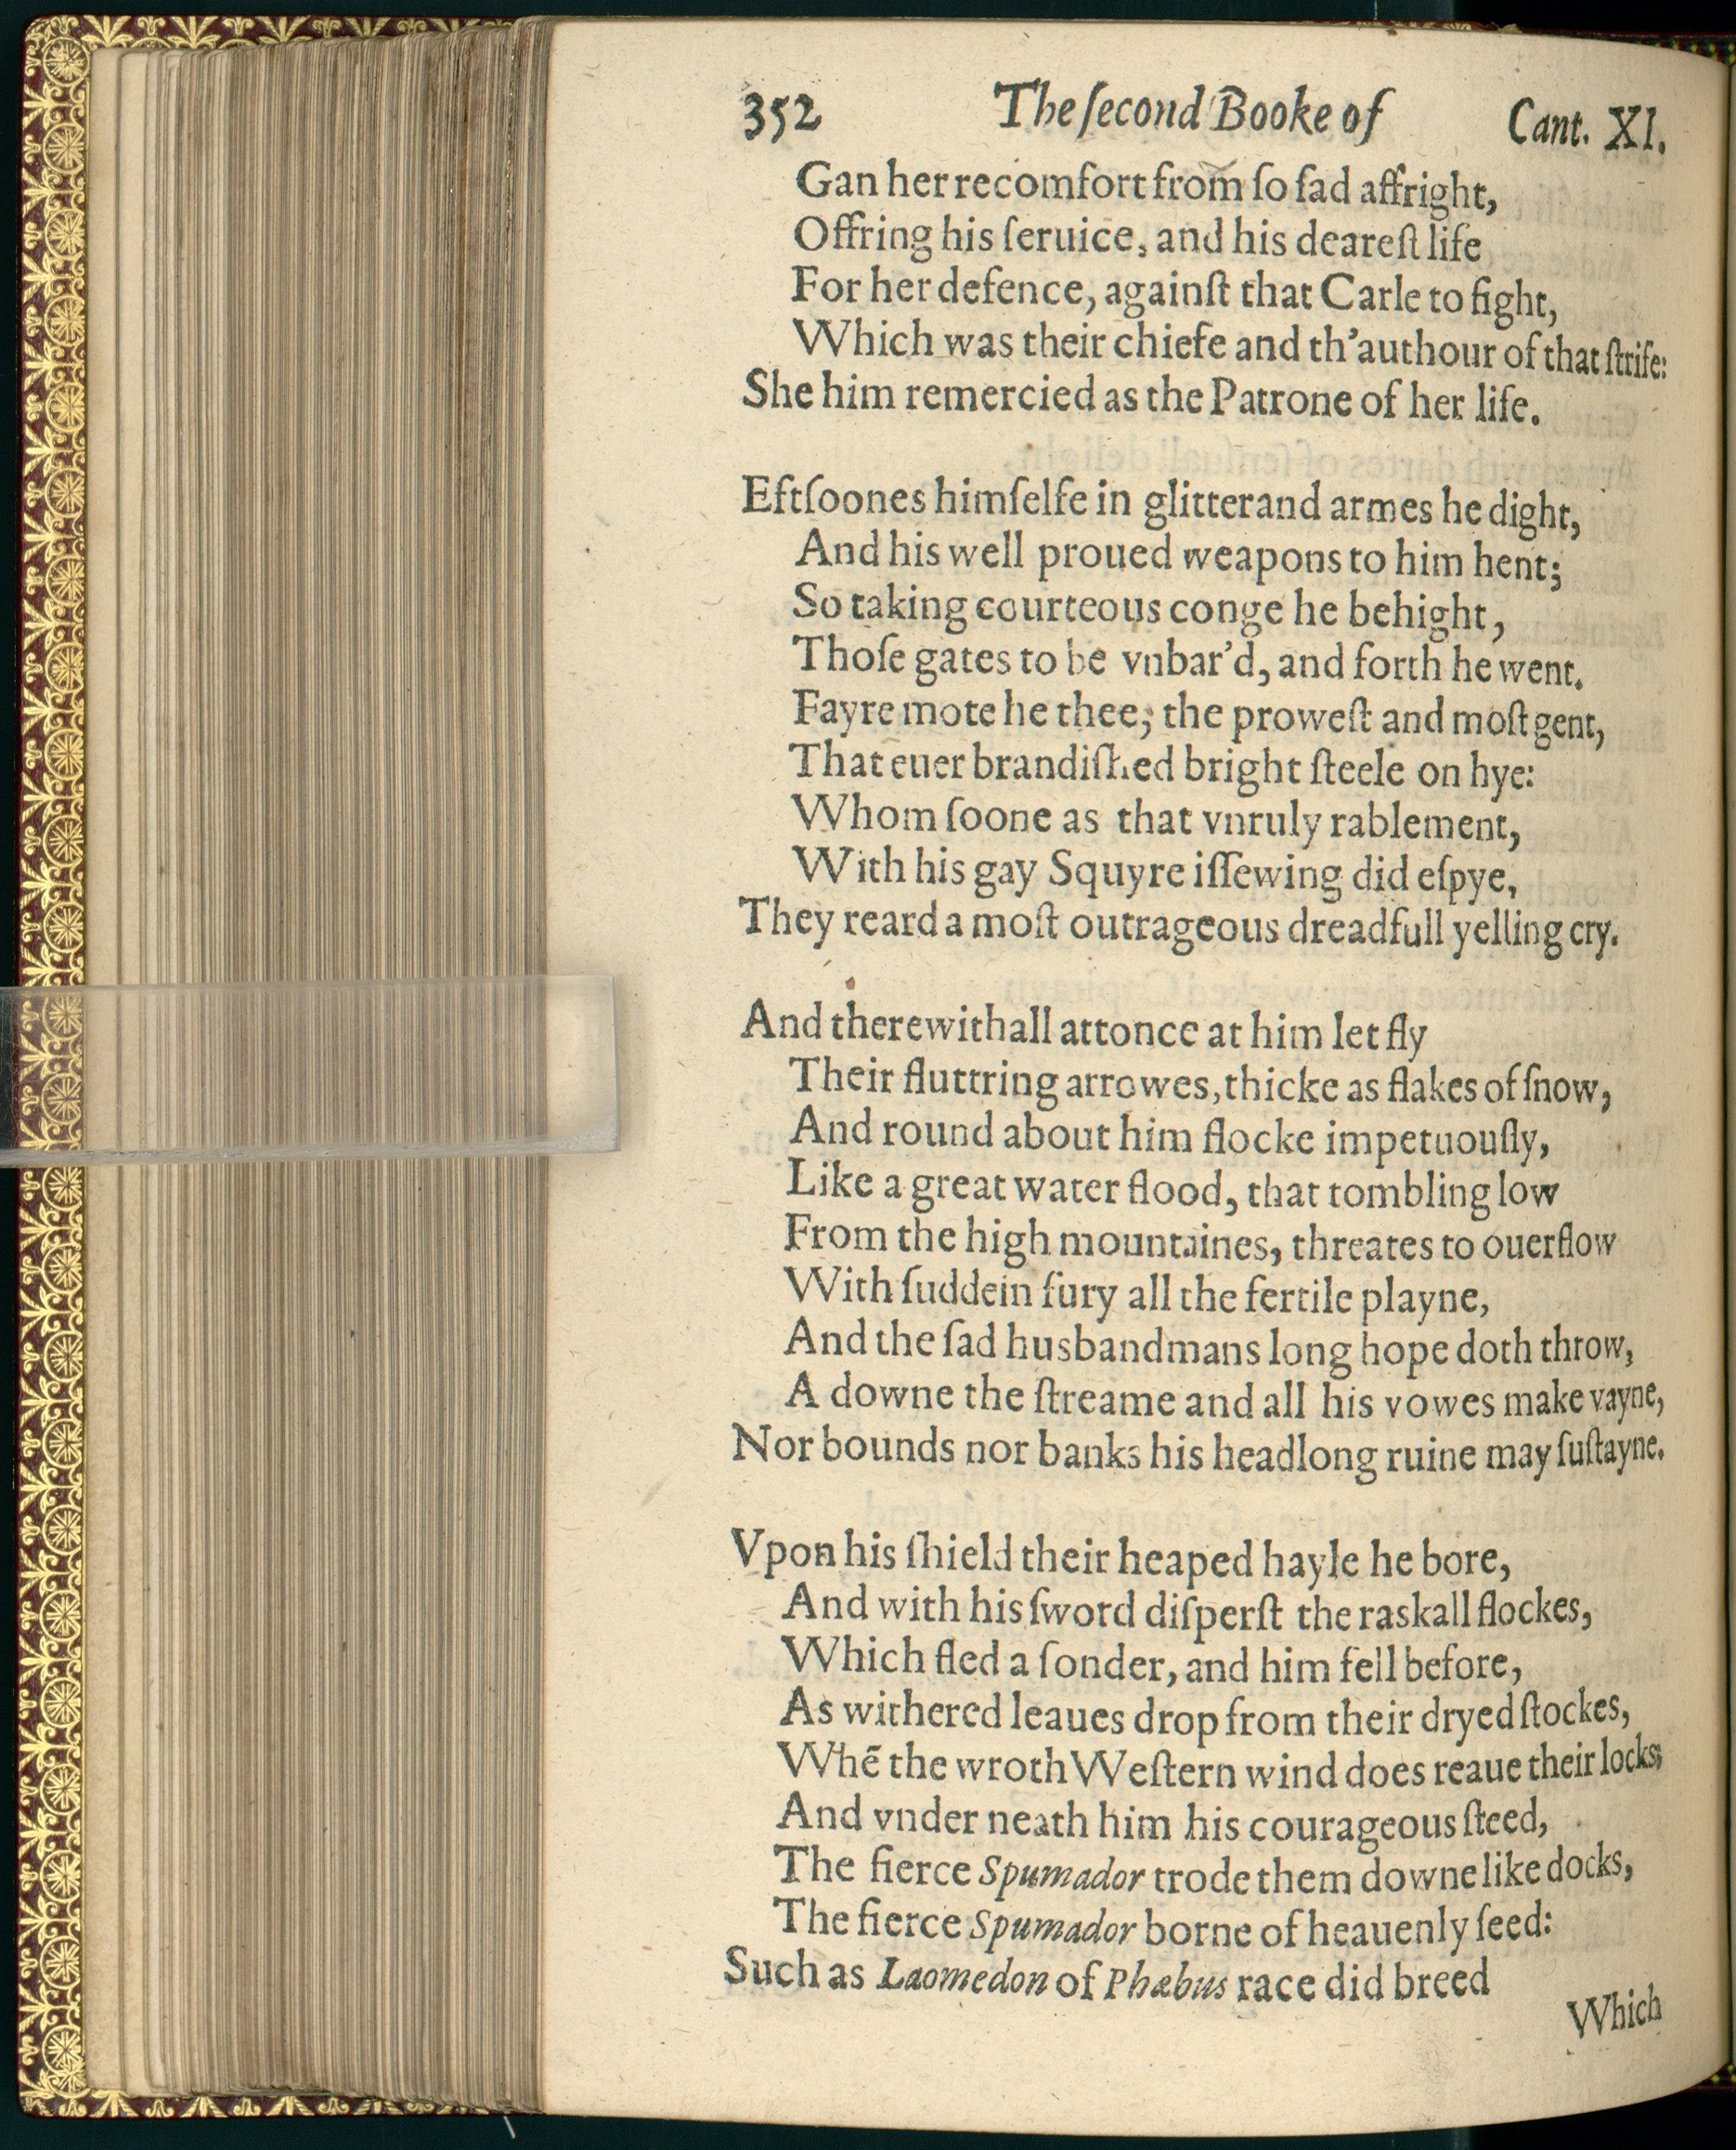 352 The ſecond Booke of Cant. XI.
Gan her recomfort from ſo ſad affright,
Offring his ſeruice, and his deareſt life
For her defence, againſt that Carle to fight,
Which was their chiefe and th'authour of that ſtrife:
She him remercied as the Patrone of her life.
Eftſoones himſelfe in glitterand armes he dight,
And his well proued weapons to him hent;
So taking courteous conge he behight,
Thoſe gates to be vnbar'd, and forth he went.
Fayre mote he thee, the proweſt and moſt gent,
That euer brandiſhed bright ſteele on hye:
Whom ſoone as that vnruly rablement,
With his gay Squyre iſſewing did eſpye,
They reard a moſt outrageous dreadfull yelling cry.
And therewithall attonce at him let fly
Their fluttring arrowes, thicke as flakes of ſnow,
And round about him flocke impetuouſly,
Like a great water flood, that tombling low
From the high mountaines, threates to ouerflow
With ſuddein fury all the fertile playne,
And the ſad husbandmans long hope doth throw,
A downe the ſtreame and all his vowes make vayne,
Nor bounds nor banks his headlong ruine may ſuſtayne.
Vpon his ſhield their heaped hayle he bore,
And with his ſword diſperſt the raskall flockes,
Which fled a ſonder, and him fell before,
As withered leaues drop from their dryed ſtockes,
Whē the wroth Weſtern wind does reaue their locks;
And vnder neath him his courageous ſteed,
The fierce Spumador trode them downe like docks,
The fierce Spumador borne of heauenly ſeed:
Such as Laomedon of Phæbus race did breed
Which